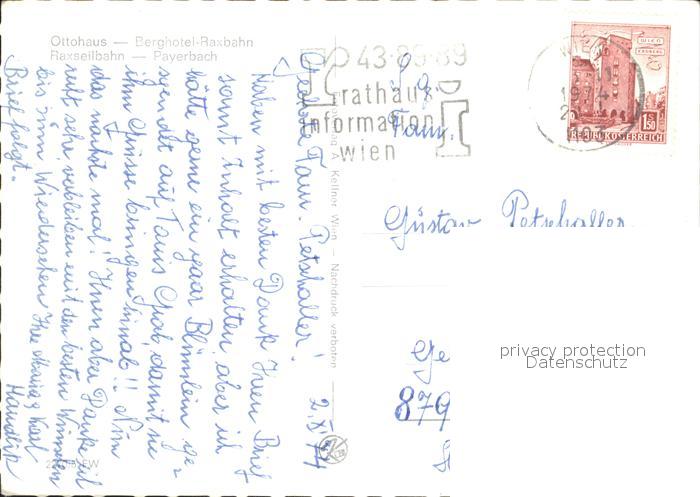 Ottohaus — Berghotel-Raxbahn
Raxseilbahn — Payerbach
43-89-89
rathaus
information
wien
WIEN
1974
REPUBLIK ÖSTERREICH
1.50
A. Kellner Wien — Nachdruck verboten
2.XI.74
Geehrte Fam. Petschaller!
Haben mit besten Dank Ihren Brief
samt Inhalt erhalten, aber ich
hätte gerne ein paar Blümlein
auf Grab, damit sie
ihm Grüsse bringen hinab!!
das nächste mal! Ihnen aber Danke
sehr verbleiben mit den besten Wünschen
bis zum Wiedersehen Ihre
Brief folgt!
Fam.
Gustav Petschaller
Ge
879
privacy protection
Datenschutz